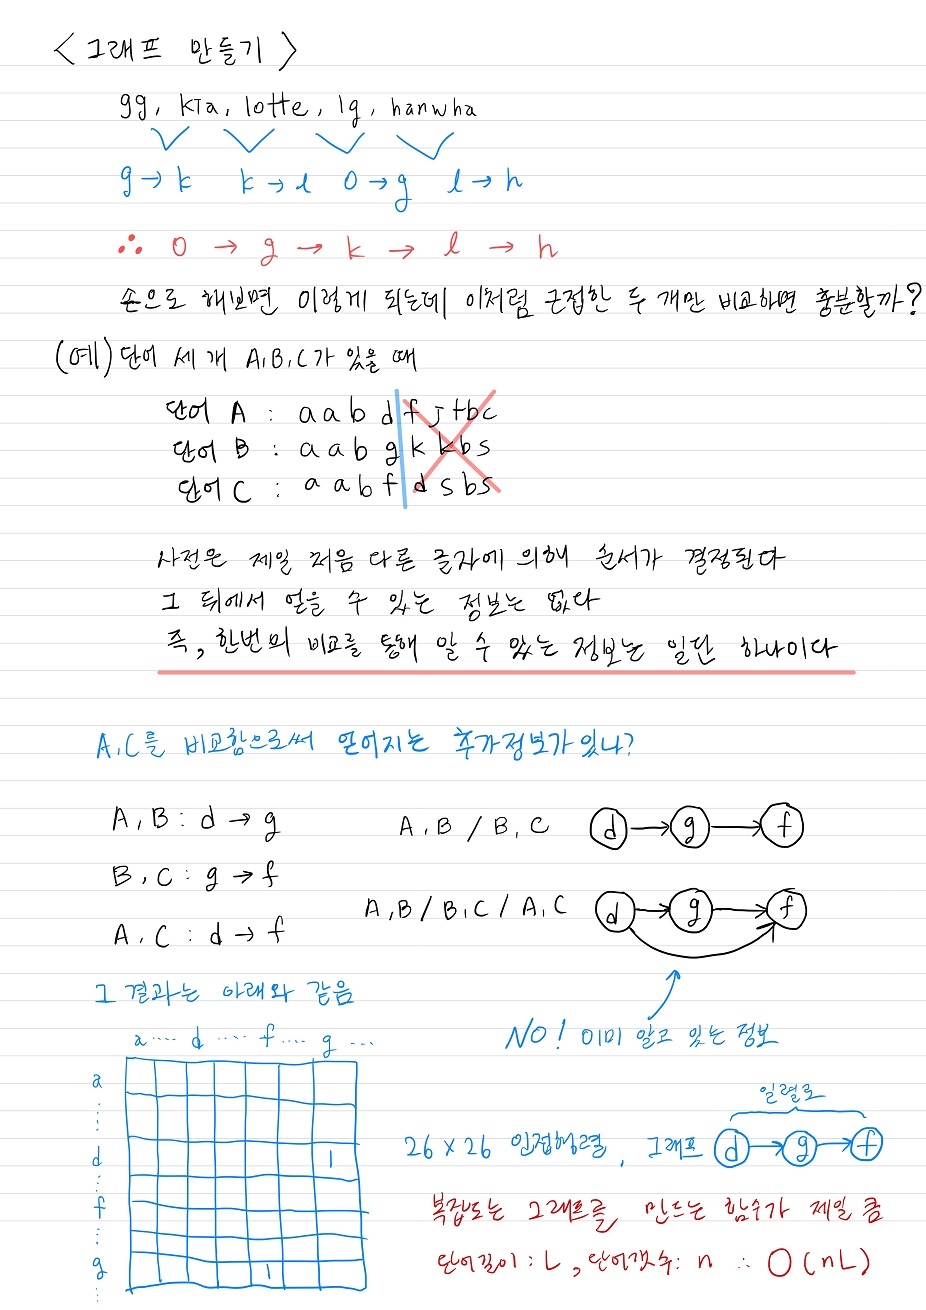 <그래프 만들기>
gg, kia, lotte, lg, hanwha
g→k k→l o→g l→h
∴ o → g → k → l → h
손으로 해보면 이렇게 되는데 이처럼 근접한 두 개만 비교하면 충분할까?
(예) 단어 세 개 A,B,C가 있을 때
단어 A : a a b d f j t b c
단어 B : a a b g k k b s
단어 C : a a b f d s b s
사전은 제일 처음 다른 글자에 의해 순서가 결정된다
그 뒤에서 얻을 수 있는 정보는 없다
즉, 한번의 비교를 통해 알 수 있는 정보는 일단 하나이다
A,C를 비교함으로써 얻어지는 추가정보가 있나?
A, B : d → g
B, C : g → f
A, C : d → f
A, B / B, C d→g→f
A, B / B, C / A, C d→g→f
NO! 이미 알고 있는 정보
그 결과는 아래와 같음
a .... d .... f .... g ...
a
:
d
1
:
f
:
g
1
:
일렬로
26 × 26 인접행렬, 그래프 d→g→f
복잡도는 그래프를 만드는 함수가 제일 큼
단어길이 : L, 단어갯수 : n ∴ O(nL)